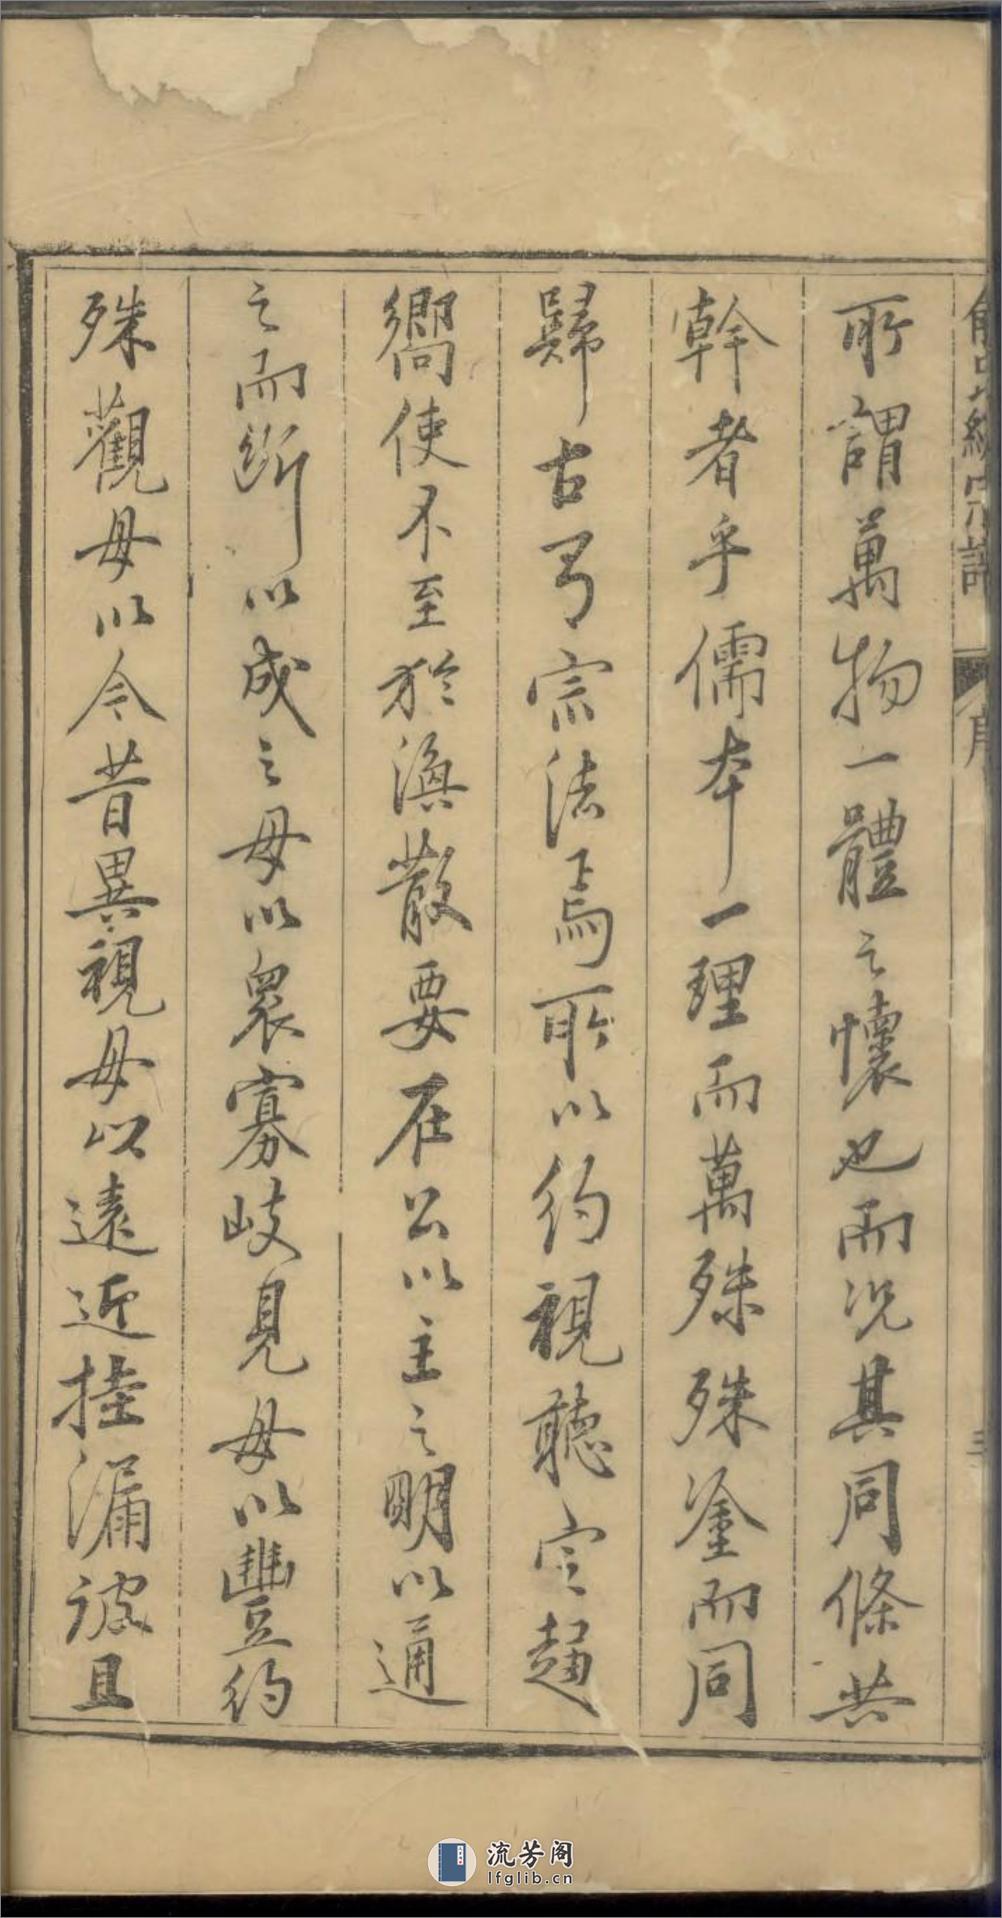 所謂萬物一體之懷也而况其同條共
幹者乎儒本一理而萬殊殊塗而同
歸古有宗法焉所以約視聽定趨
嚮使不至於渙散要在公以主之明以通
之而斷以成之毋以衆寡岐見毋以豐約
殊觀毋以今昔異視毋以遠近挂漏詖且
統宗譜
序
流芳阁
lfglib.cn